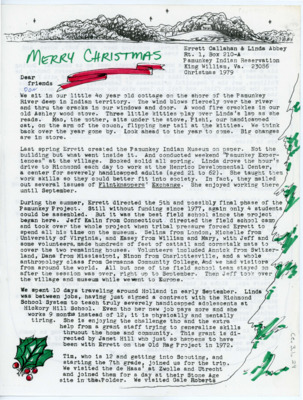 MERRY CHRISTMAS
Errett Callahan & Linda Abbey
Rt. 1, Box 210-A
Pamunkey Indian Reservation
King William, Va. 23086
Christmas 1979
Dear
friends
We sit in our little 40 year old cottage on the shore of the Pamunkey
River deep in Indian territory. The wind blows fiercely over the river
and thru the cracks in our windows and door. A wood fire crackles in our
old Ashley wood stove. Three little kitties play over Linda's lap as she
reads. Man, the mother, sits under the stove, Fisht, our handicapped
cat, on the arm of the couch, flipping her tail at the kitties. We think
back over the year gone by. Look ahead to the year to come. Big changes
are in store.
Last spring Errett created the Pamunkey Indian Museum on paper. Not the
building but what went inside it. And conducted weekend "Pamunkey Exper-
iences" at the village. Booked solid all spring. Linda drove the hour's
drive to Richmond each day to work at the Richmond Developmental Center,
a center for severely handicapped adults (aged 21 to 62). She taught them
work skills so they could better fit into society. In fact, they mailed
out several issues of Flintknappers' Exchange. She enjoyed working there
until September.
During the summer, Errett directed the 5th and possibly final phase of the
Pamunkey Project. Still without funding since 1977, again only 4 students
could be assembled. But it was the best field school since the project
began here. Jeff Kalin from Connecticut directed the field school camp
and took over the whole project when tribal pressure forced Errett to
spend all his time on the museum. Selina from London, Michelle from
University of Maryland, and Kasey from Antioch College, with Jeff and
some volunteers, made hundreds of feet of cattail and cornstalk mats to
cover the two remaining houses. Volunteers included Annick from Switzer-
land, Dana from Mississippi, Ninon from Charlottesville, and a whole
anthropology class from Germanna Community College. And we had visitors
from around the world. All but one of the field school team stayed on
after the session was over, right up to September. Then Jeff took over
the village and museum while we went to Europe.
We spent 10 days traveling around Holland in early September. Linda
was between jobs, having just signed a contract with the Richmond
School System to teach truly severely handicapped adolescents at
Hickory Hill School. Even tho her new job pays more and she
works 9 months instead of 12, it is physically and mentally
tiring. She is enjoying the challenge tho and the extra
help from a grant staff trying to generalize skills
thruout the home and community. This grant is di-
rected by Janet Hill who just so happens to have
been with Errett on the Old Rag Project in 1972.
Tim, who is 12 and getting into Scouting, and
starting the 7th grade, joined us for the trip.
We visited the de Haas' at Zwolle and Utrecht
and joined them for a day at their Stone Age
site in the Polder. We visited Gale Roberts